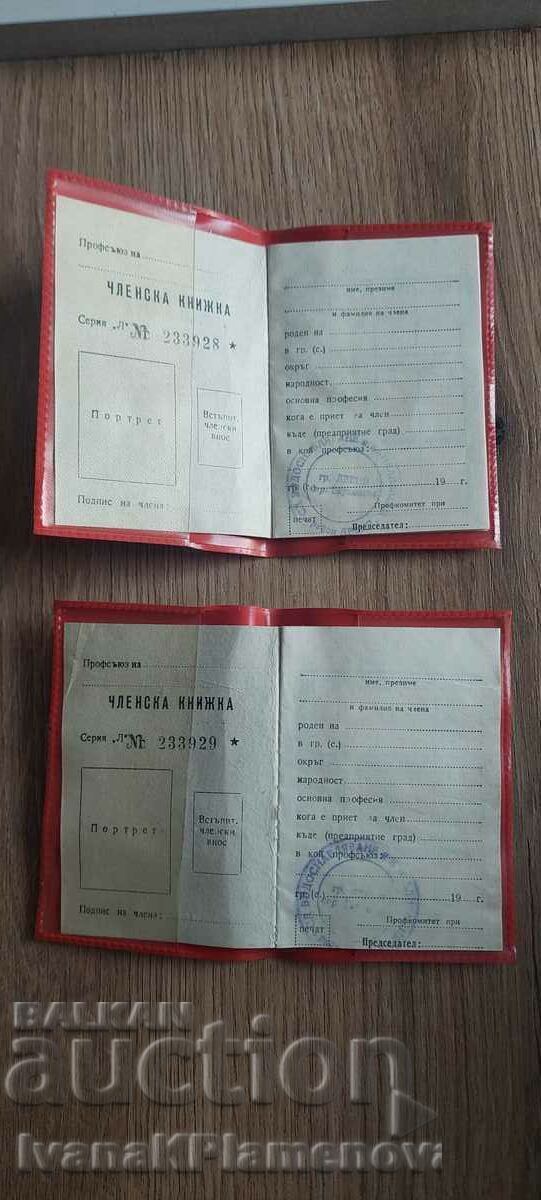 Профсъюз на
ЧЛЕНСКА КНИЖКА
Серия „Л“ № 233928 ★
Портрет
Встъпит.
членски
внос
Подпис на члена:
име, презиме
и фамилия на члена
роден на
в гр. (с.)
окръг
народност
основна професия
кога е приет за член
къде (предприятие град)
в кой профсъюз:
гр. (с.) 19 г.
Профкомитет при
печат
Председател:
Профсъюз на
ЧЛЕНСКА КНИЖКА
Серия „Л“ № 233929 ★
Портрет
Встъпит.
членски
внос
Подпис на члена:
име, презиме
и фамилия на члена
роден на
в гр. (с.)
окръг
народност
основна професия
кога е приет за член
къде (предприятие град)
в кой профсъюз:
гр. (с.) 19 г.
Профкомитет при
печат
Председател:
BALKAN
auction
IvanaKPlamenova